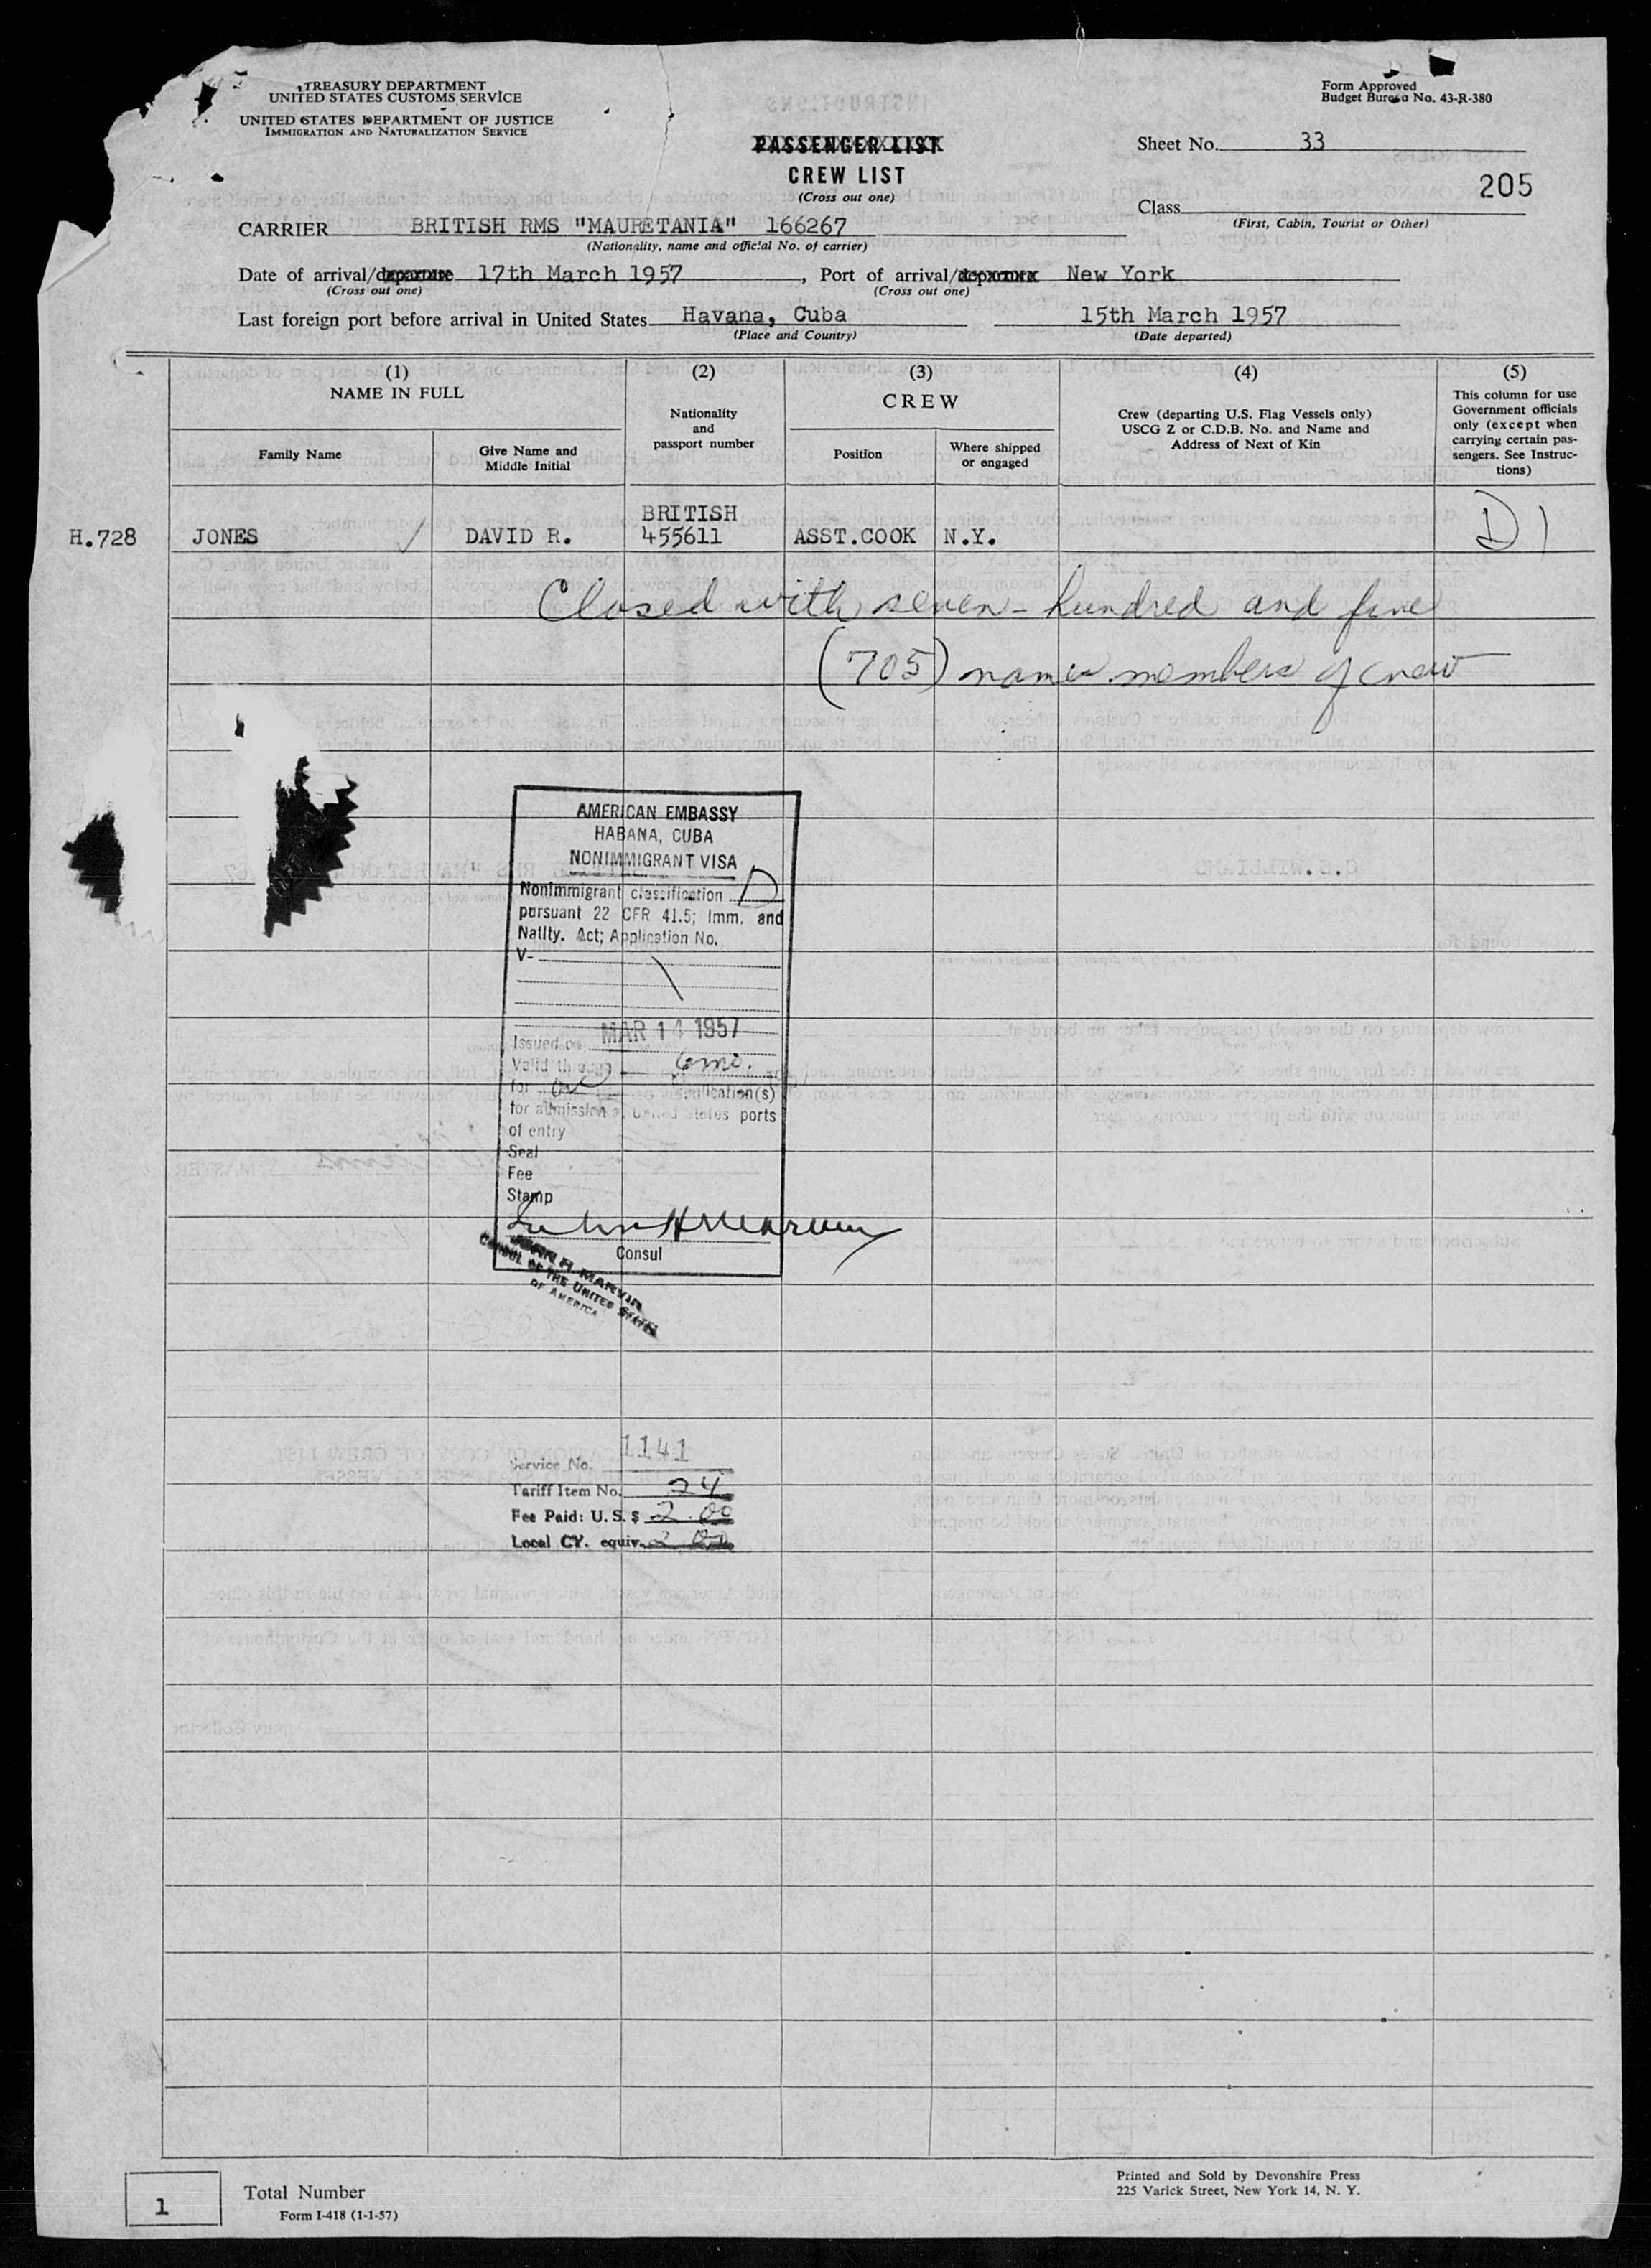 TREASURY DEPARTMENT
UNITED STATES CUSTOMS SERVICE
UNITED STATES DEPARTMENT OF JUSTICE
IMMIGRATION AND NATURALIZATION SERVICE
Form Approved
Budget Bureau No. 43-R-380
PASSENGER LIST
CREW LIST
(Cross out one)
Sheet No. 33
205
Class
(First, Cabin, Tourist or Other)
CARRIER BRITISH RMS "MAURETANIA" 166267
(Nationality, name and official No. of carrier)
Date of arrival/departure 17th March 1957, Port of arrival/departure New York
(Cross out one) (Cross out one)
Last foreign port before arrival in United States Havana, Cuba 15th March 1957
(Place and Country) (Date departed)
(1) (2) (3) (4) (5)
NAME IN FULL
Family Name
Give Name and
Middle Initial
Nationality
and
passport number
CREW
Position
Where shipped
or engaged
Crew (departing U.S. Flag Vessels only)
USCG Z or C.D.B. No. and Name and
Address of Next of Kin
This column for use
Government officials
only (except when
carrying certain pas-
sengers. See Instruc-
tions)
BRITISH
H.728 JONES DAVID R. 455611 ASST.COOK N.Y. D1
Closed with seven-hundred and five
(705) names members of crew
AMERICAN EMBASSY
HABANA, CUBA
NONIMMIGRANT VISA
Nonimmigrant classification D
pursuant 22 CFR 41.5; Imm. and
Natlty. Act; Application No.
V-
Issued on MAR 14 1957
Valid through 6 mo.
for one application(s)
for admission at United States ports
of entry
Seal
Fee
Stamp
John H Marvin
Consul
JOHN H. MARVIN
CONSUL OF THE UNITED STATES
OF AMERICA
Service No. 1141
Tariff Item No. 24
Fee Paid: U.S. $ 2.00
Local CY. equiv. 2.00
1
Total Number
Form I-418 (1-1-57)
Printed and Sold by Devonshire Press
225 Varick Street, New York 14, N. Y.